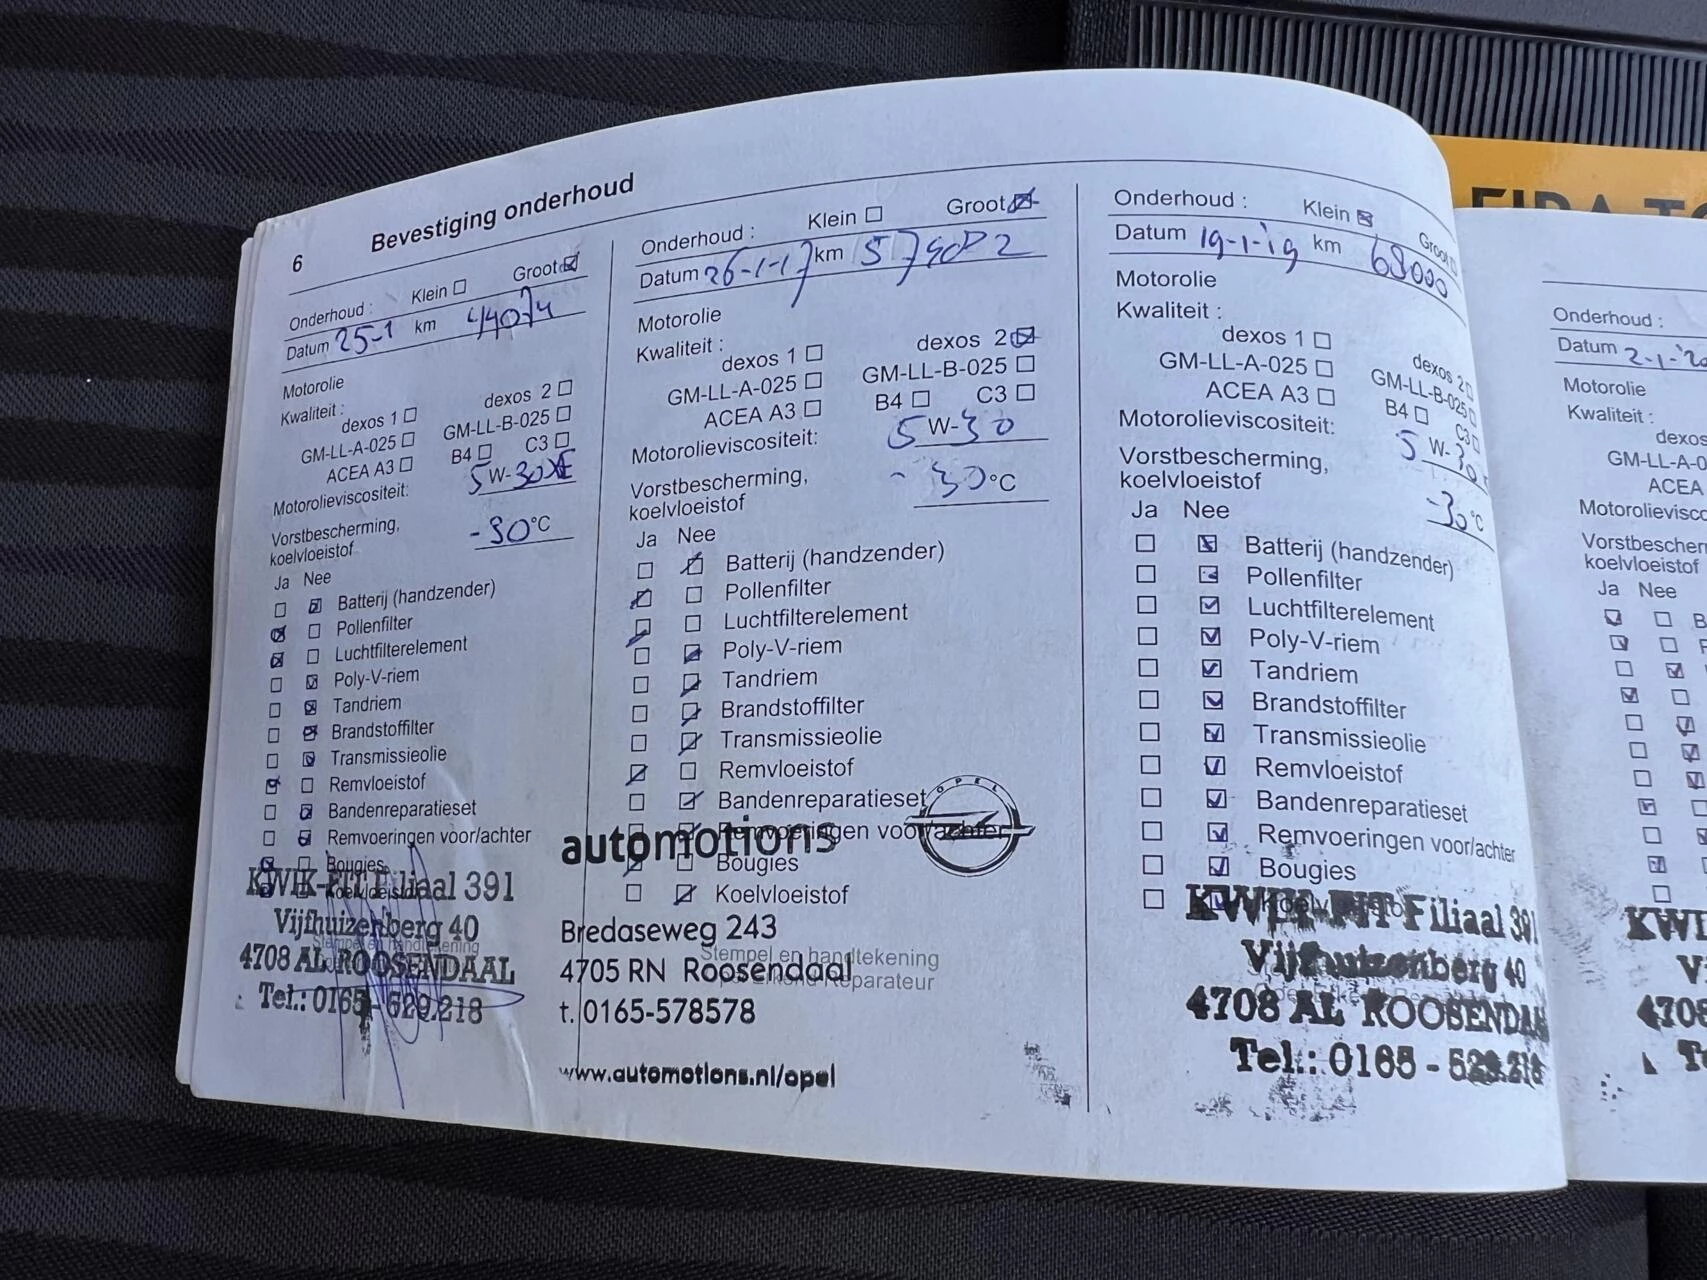 6 Bevestiging onderhoud
Onderhoud : Klein Groot
Datum 25-1 km 44074
Motorolie
Kwaliteit :
dexos 1 dexos 2
GM-LL-A-025 GM-LL-B-025
ACEA A3 B4 C3
Motorolieviscositeit: 5 W-30
Vorstbescherming,
koelvloeistof -30°C
Ja Nee
Batterij (handzender)
Pollenfilter
Luchtfilterelement
Poly-V-riem
Tandriem
Brandstoffilter
Transmissieolie
Remvloeistof
Bandenreparatieset
Remvoeringen voor/achter
Bougies
KWIK-FIT Filiaal 391
Vijfhuizenberg 40
Stempel en handtekening
4708 AL ROOSENDAAL
Tel.: 0165-529.218
Onderhoud : Klein Groot
Datum 26-1-17 km
Motorolie
Kwaliteit :
dexos 1 dexos 2
GM-LL-A-025 GM-LL-B-025
ACEA A3 B4 C3
Motorolieviscositeit: 5 W-30
Vorstbescherming,
koelvloeistof -30°C
Ja Nee
Batterij (handzender)
Pollenfilter
Luchtfilterelement
Poly-V-riem
Tandriem
Brandstoffilter
Transmissieolie
Remvloeistof
Bandenreparatieset
OPEL
Remvoeringen voor/achter
automotions
Bougies
Koelvloeistof
Bredaseweg 243
Stempel en handtekening
4705 RN Roosendaal
Reparateur
t. 0165-578578
www.automotions.nl/opel
Onderhoud : Klein Groot
Datum 19-1-'19 km 68000
Motorolie
Kwaliteit :
dexos 1 dexos 2
GM-LL-A-025 GM-LL-B-025
ACEA A3 B4 C3
Motorolieviscositeit: 5 W-30
Vorstbescherming,
koelvloeistof -30°C
Ja Nee
Batterij (handzender)
Pollenfilter
Luchtfilterelement
Poly-V-riem
Tandriem
Brandstoffilter
Transmissieolie
Remvloeistof
Bandenreparatieset
Remvoeringen voor/achter
Bougies
KWIK-FIT Filiaal 391
Vijfhuizenberg 40
4708 AL ROOSENDAA
Tel.: 0165-529.218
Onderhoud :
Datum 2-1-'20
Motorolie
Kwaliteit :
dexos
GM-LL-A-0
ACEA
Motorolievisco
Vorstbescher
koelvloeistof
Ja Nee
B
KWI
V
4708
Te